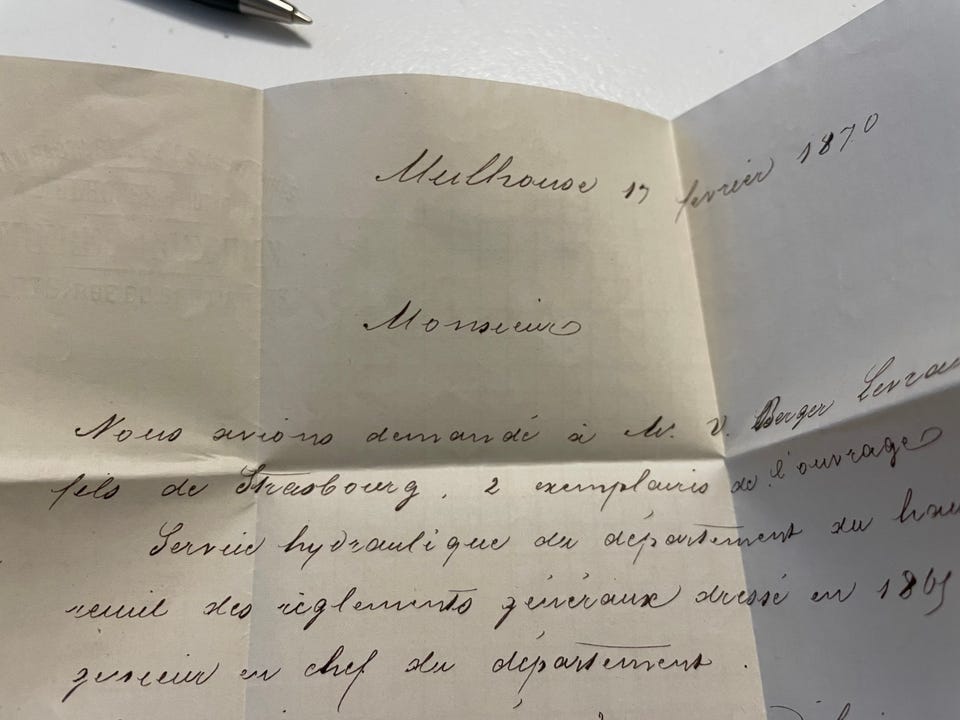 Mulhouse 17 fevrier 1870
Monsieur
Nous avions demandé à Mr. V. Berger Levrau
fils de Strasbourg, 2 exemplaires de l'ouvrage
Service hydraulique du département du hau
cueil des règlements généraux dressé en 1865
génieur en chef du département.